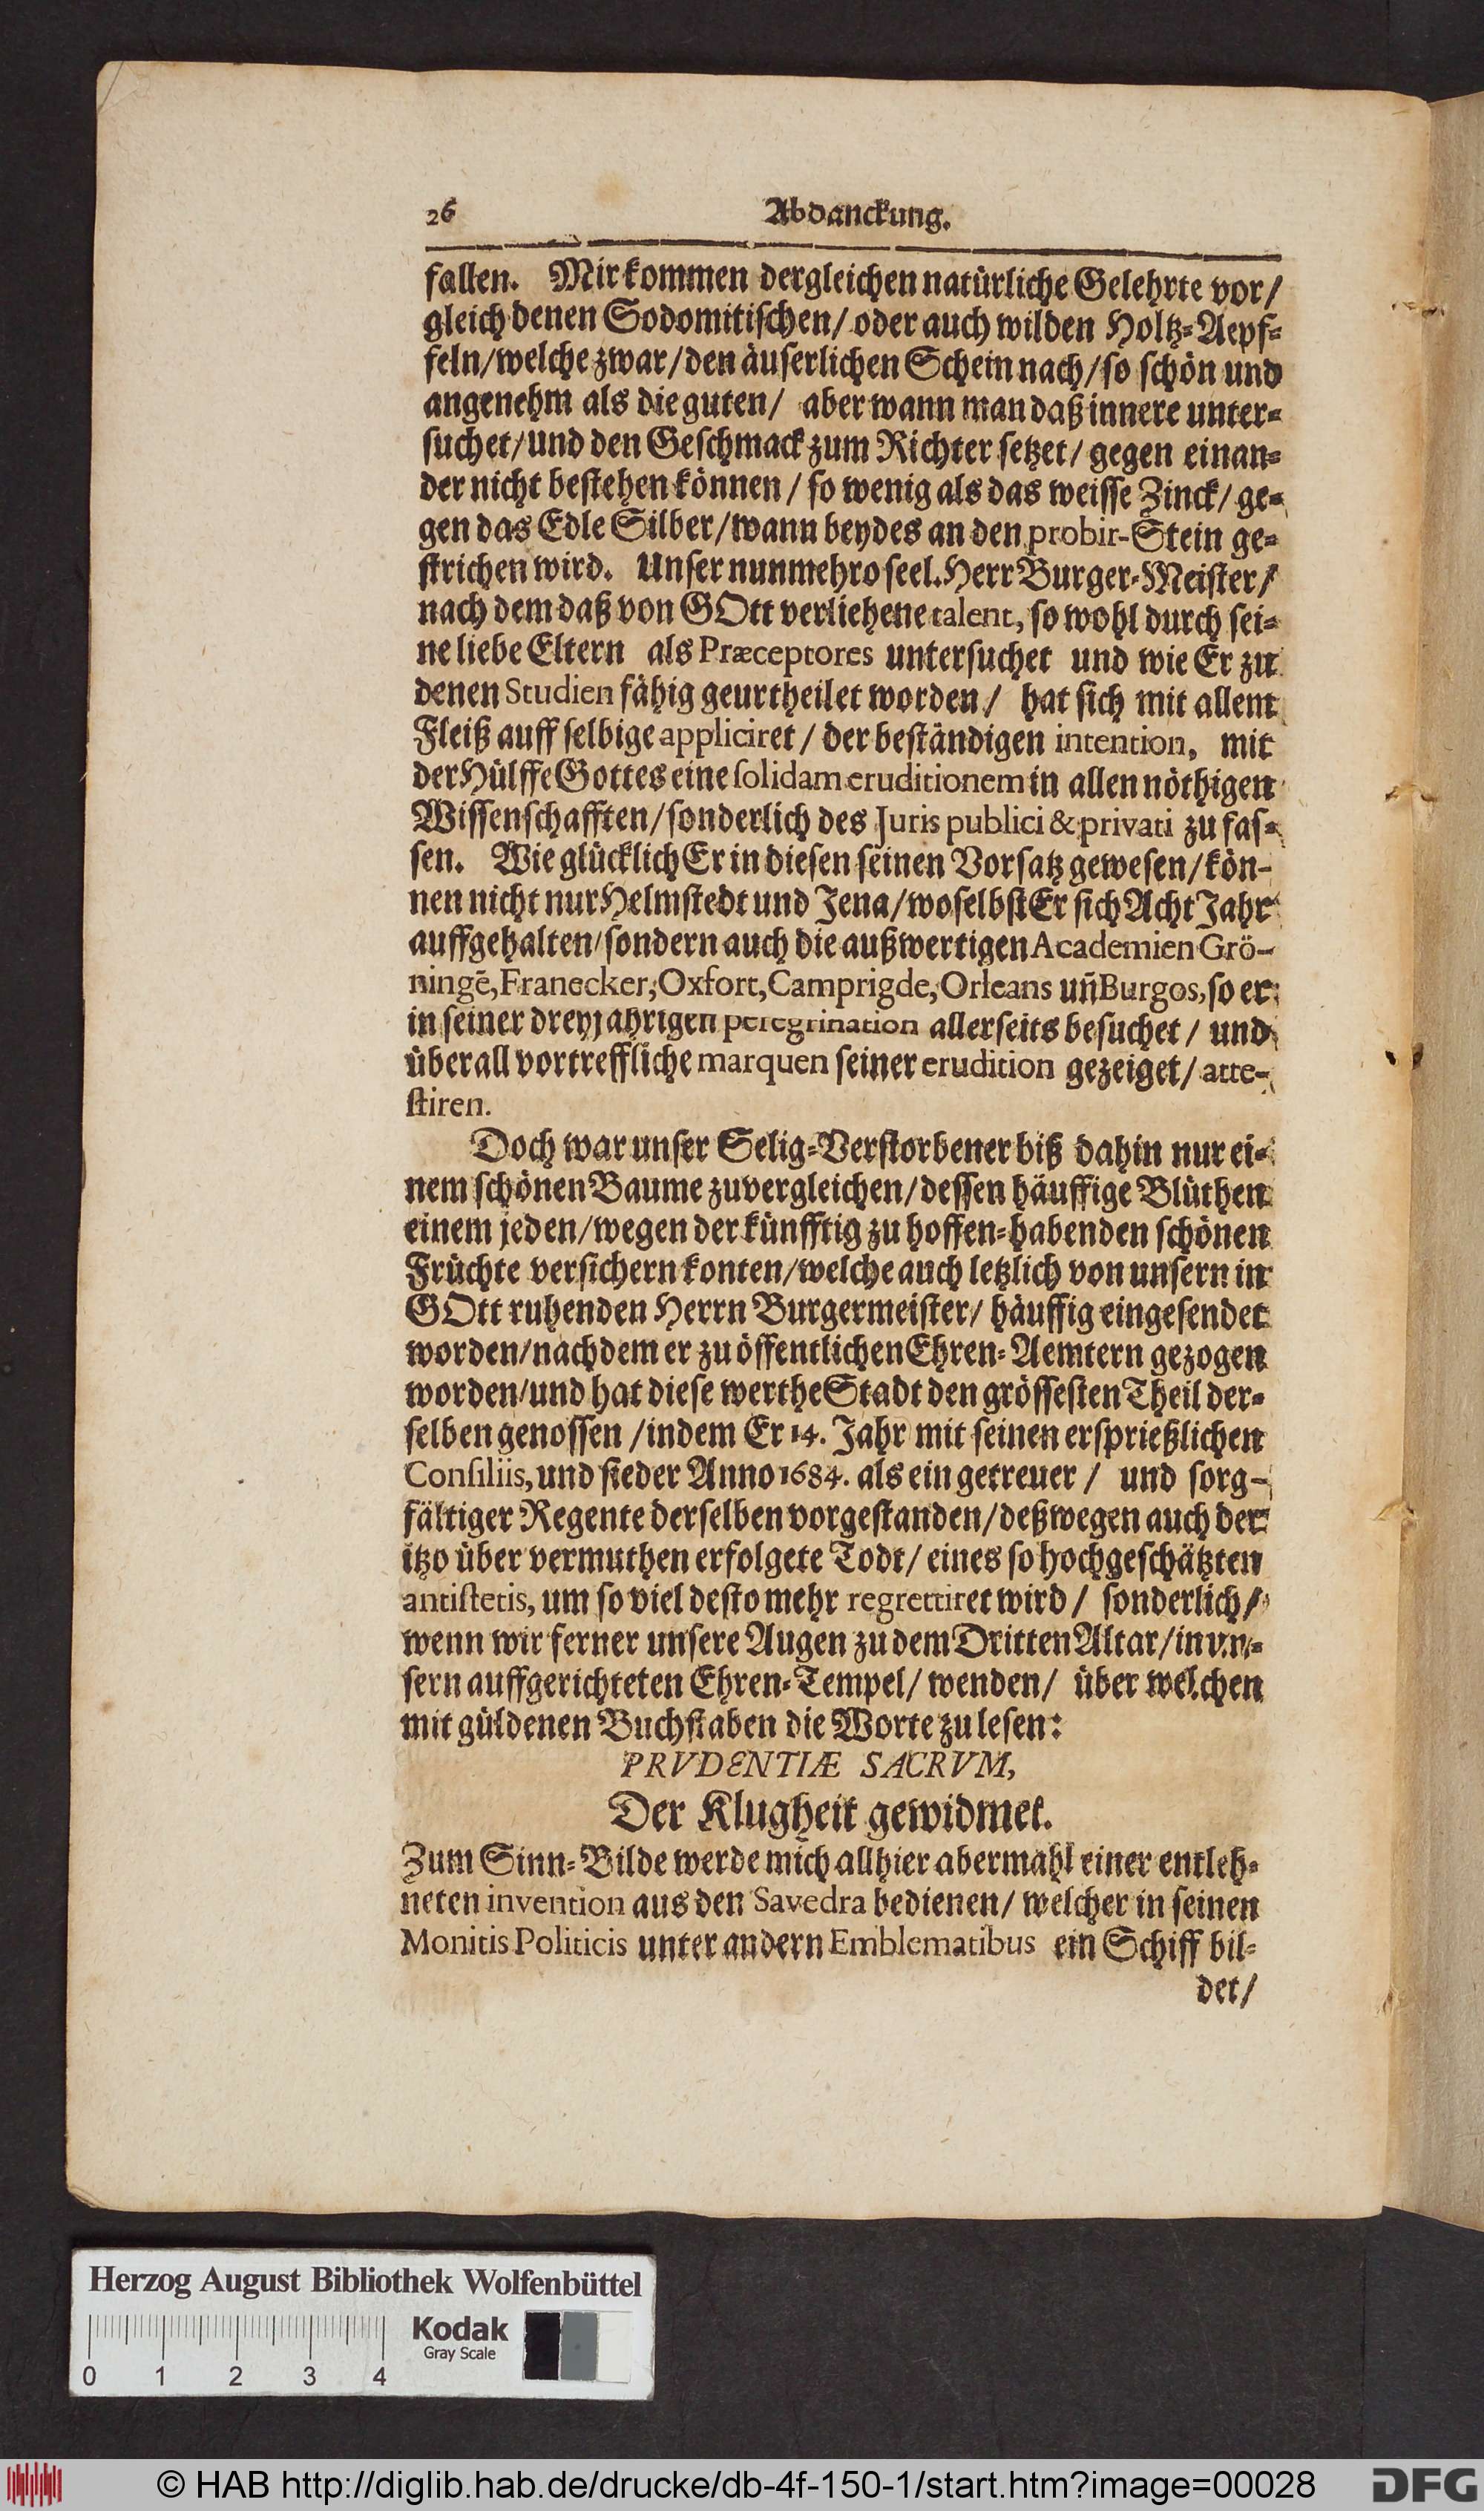 26 Abdanckung.
fallen. Mir kommen dergleichen natürliche Gelehrte vor/
gleich denen Sodomitischen/ oder auch wilden Holtz-Aepf-
feln/ welche zwar/ den äuserlichen Schein nach/ so schön und
angenehm als die guten/ aber wann man daß innere unter-
suchet/ und den Geschmack zum Richter setzet/ gegen einan-
der nicht bestehen können/ so wenig als das weisse Zinck/ ge-
gen das Edle Silber/ wann beydes an den probir-Stein ge-
strichen wird. Unser nunmehro seel. Herr Burger-Meister/
nach dem daß von GOtt verliehene talent, so wohl durch sei-
ne liebe Eltern als Præceptores untersuchet und wie Er zu
denen Studien fähig geurtheilet worden/ hat sich mit allem
Fleiß auff selbige appliciret/ der beständigen intention, mit
der Hülffe Gottes eine solidam eruditionem in allen nöthigen
Wissenschafften/ sonderlich des Juris publici & privati zu fas-
sen. Wie glücklich Er in diesen seinen Vorsatz gewesen/ kön-
nen nicht nur Helmstedt und Jena/ woselbst Er sich Acht Jahr
auffgehalten/ sondern auch die außwertigen Academien Grö-
ningē, Franecker, Oxfort, Camprigde, Orleans uñ Burgos, so er
in seiner dreyjahrigen peregrination allerseits besuchet/ und
überall vortreffliche marquen seiner erudition gezeiget/ atte-
stiren.
Doch war unser Selig-Verstorbener biß dahin nur ei-
nem schönen Baume zuvergleichen/ dessen häuffige Blüthen
einem jeden/ wegen der künfftig zu hoffen-habenden schönen
Früchte versichern konten/ welche auch letzlich von unsern in
GOtt ruhenden Herrn Burgermeister/ häuffig eingesendet
worden/ nachdem er zu öffentlichen Ehren-Aemtern gezogen
worden/ und hat diese werthe Stadt den grössesten Theil der-
selben genossen/ indem Er 14. Jahr mit seinen ersprießlichen
Consiliis, und sieder Anno 1684. als ein getreuer/ und sorg-
fältiger Regente derselben vorgestanden/ deßwegen auch der
itzo über vermuthen erfolgete Todt/ eines so hochgeschätzten
antistetis, um so viel desto mehr regrettiret wird/ sonderlich/
wenn wir ferner unsere Augen zu dem Dritten Altar/ in un-
sern auffgerichteten Ehren-Tempel/ wenden/ über welchen
mit güldenen Buchstaben die Worte zu lesen:
PRVDENTIÆ SACRVM,
Der Klugheit gewidmet.
Zum Sinn-Bilde werde mich allhier abermahl einer entleh-
neten invention aus den Savedra bedienen/ welcher in seinen
Monitis Politicis unter andern Emblematibus ein Schiff bil-
det/
Herzog August Bibliothek Wolfenbüttel
Kodak
Gray Scale
0 1 2 3 4
© HAB http://diglib.hab.de/drucke/db-4f-150-1/start.htm?image=00028
DFG